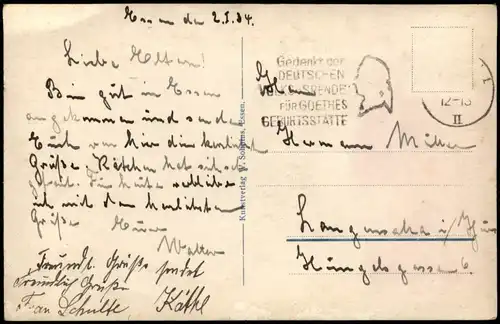 Essen den 2.I.34.
Liebe Eltern!
Bin gut in Essen
angekommen und sende
Euch von hier die herzlichsten
Grüße. Käthen hat sich
gefreut. Für heute verbleibe
ich mit den herzlichsten
Grüße Euer
Walter
Freundl. Grüße sendet
Freundlich Grüße
Frau Schulte, Käthe
Kunstverlag W. Sobbins, Essen.
Gedenkt der
DEUTSCHEN
VOLKS-SPENDE
FÜR GOETHES
GEBURTSSTÄTTE
12-13
II
Hermann Müller
Langensalza i/Thür
Hüngelsgasse 6.